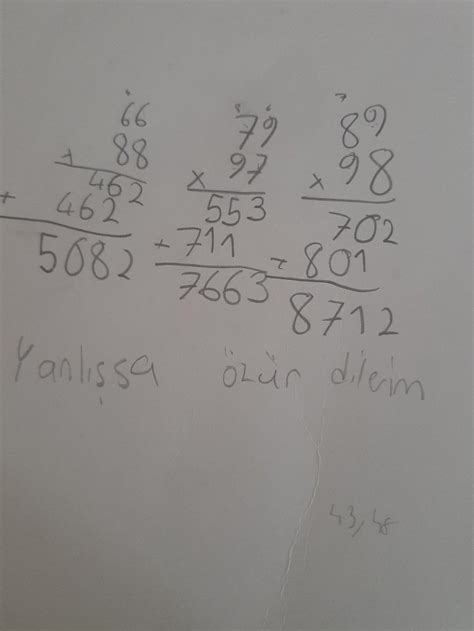 66 79 89
x 88 x 97 x 98
462 553 702
+ 462 + 711 + 801
5082 7663 8712
Yanlışsa özür dilerim
43,48